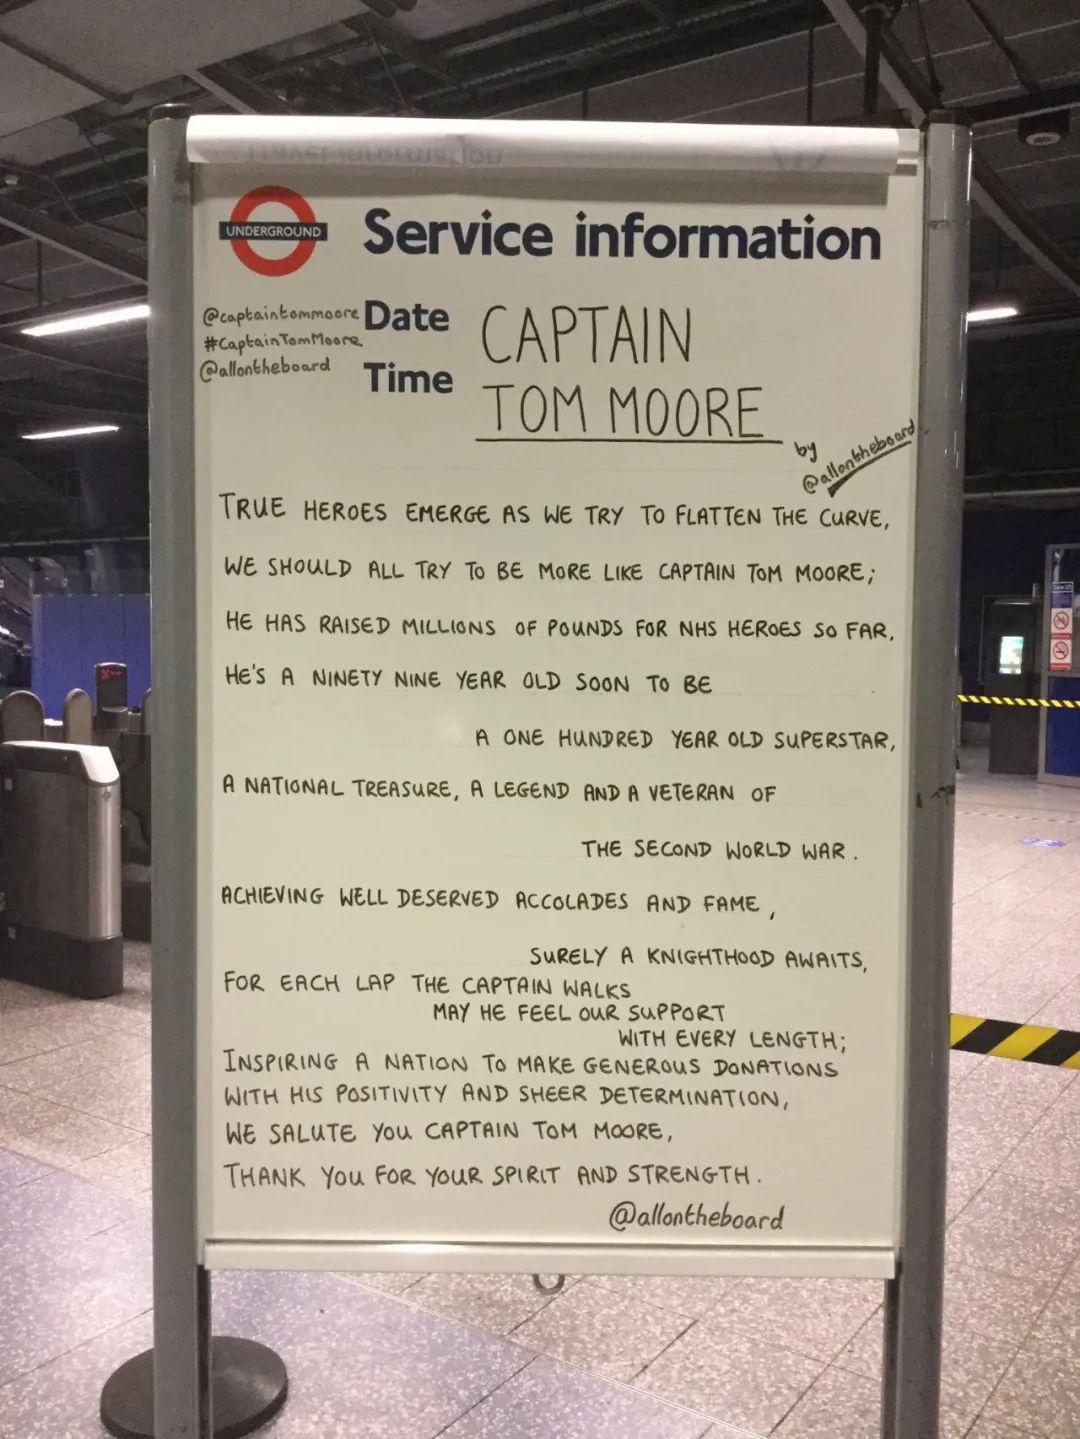 Travel information
UNDERGROUND
Service information
@captaintommoore
#CaptainTomMoore
@allontheboard
Date
Time
CAPTAIN
TOM MOORE
by
@allontheboard
TRUE HEROES EMERGE AS WE TRY TO FLATTEN THE CURVE,
WE SHOULD ALL TRY TO BE MORE LIKE CAPTAIN TOM MOORE;
HE HAS RAISED MILLIONS OF POUNDS FOR NHS HEROES SO FAR,
HE'S A NINETY NINE YEAR OLD SOON TO BE
A ONE HUNDRED YEAR OLD SUPERSTAR,
A NATIONAL TREASURE, A LEGEND AND A VETERAN OF
THE SECOND WORLD WAR.
ACHIEVING WELL DESERVED ACCOLADES AND FAME,
SURELY A KNIGHTHOOD AWAITS,
FOR EACH LAP THE CAPTAIN WALKS
MAY HE FEEL OUR SUPPORT
WITH EVERY LENGTH;
INSPIRING A NATION TO MAKE GENEROUS DONATIONS
WITH HIS POSITIVITY AND SHEER DETERMINATION,
WE SALUTE YOU CAPTAIN TOM MOORE,
THANK YOU FOR YOUR SPIRIT AND STRENGTH.
@allontheboard